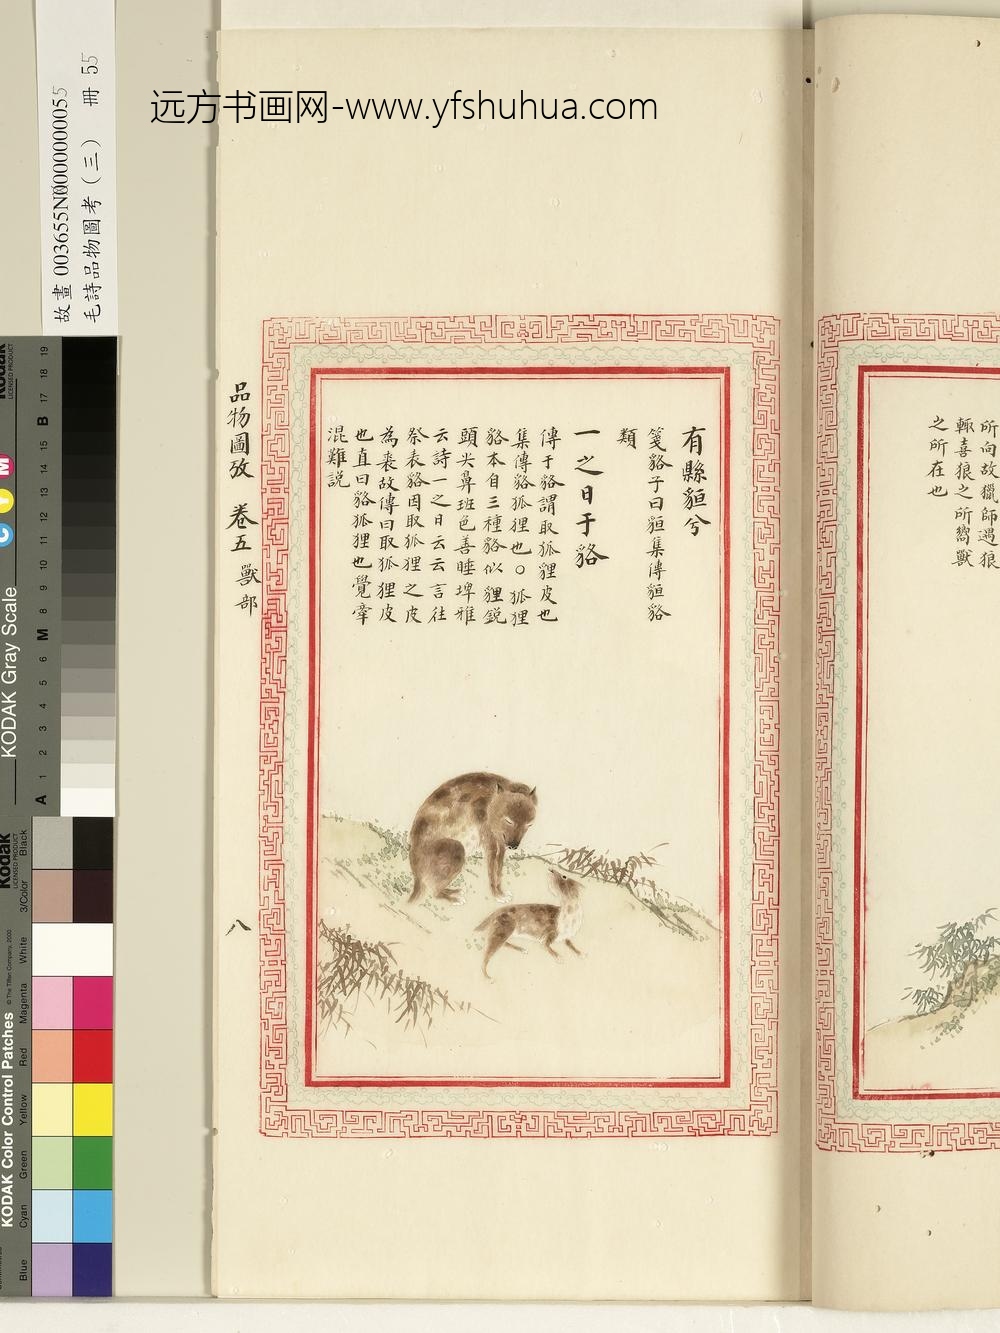 远方书画网-www.yfshuhua.com
故畫 003655N000000005５
毛詩品物圖考（三） 冊 55
所向故獵師遇狼
輒喜狼之所嚮獸
之所在也
有縣貆兮
箋貉子曰貆集傳貆貉
類
一之日于貉
傳于貉謂取狐貍皮也
集傳貉狐狸也○狐狸
貉本自三種貉似貍鋭
頭尖鼻班色善睡埤雅
云詩一之日云云言往
祭表貉因取狐狸之皮
為裘故傳曰取狐狸皮
也直曰貉狐狸也覺牽
混難説
品物圖攷 卷五 獸部
八
Kodak
LICENSED PRODUCT
KODAK Gray Scale
C Y M
A 1 2 3 4 5 6 M 8 9 10 11 12 13 14 15 B 17 18 19
Kodak
LICENSED PRODUCT
KODAK Color Control Patches
© The Tiffen Company, 2000
Blue Cyan Green Yellow Red Magenta White 3/Color Black